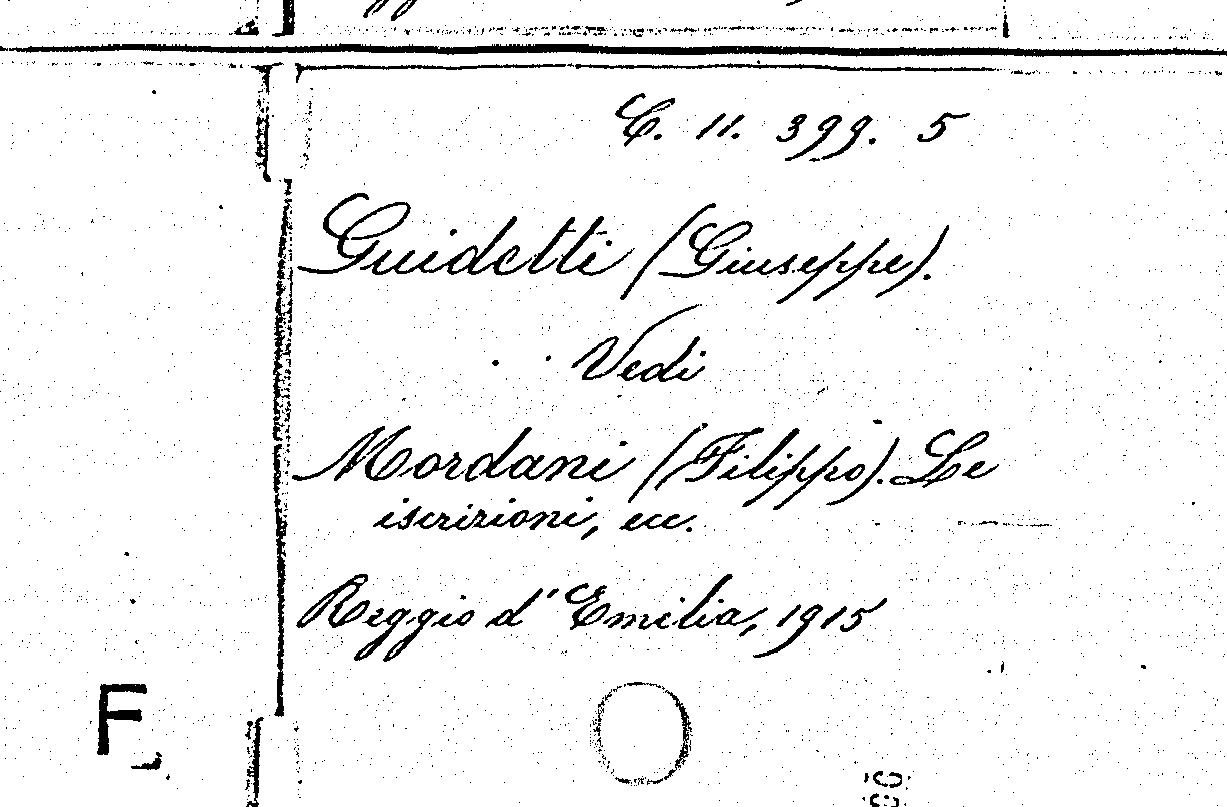 C. 11. 399. 5
Guidetti (Giuseppe).
Vedi
Mordani (Filippo). Le
iscrizioni, ecc.
Reggio d'Emilia, 1915
F